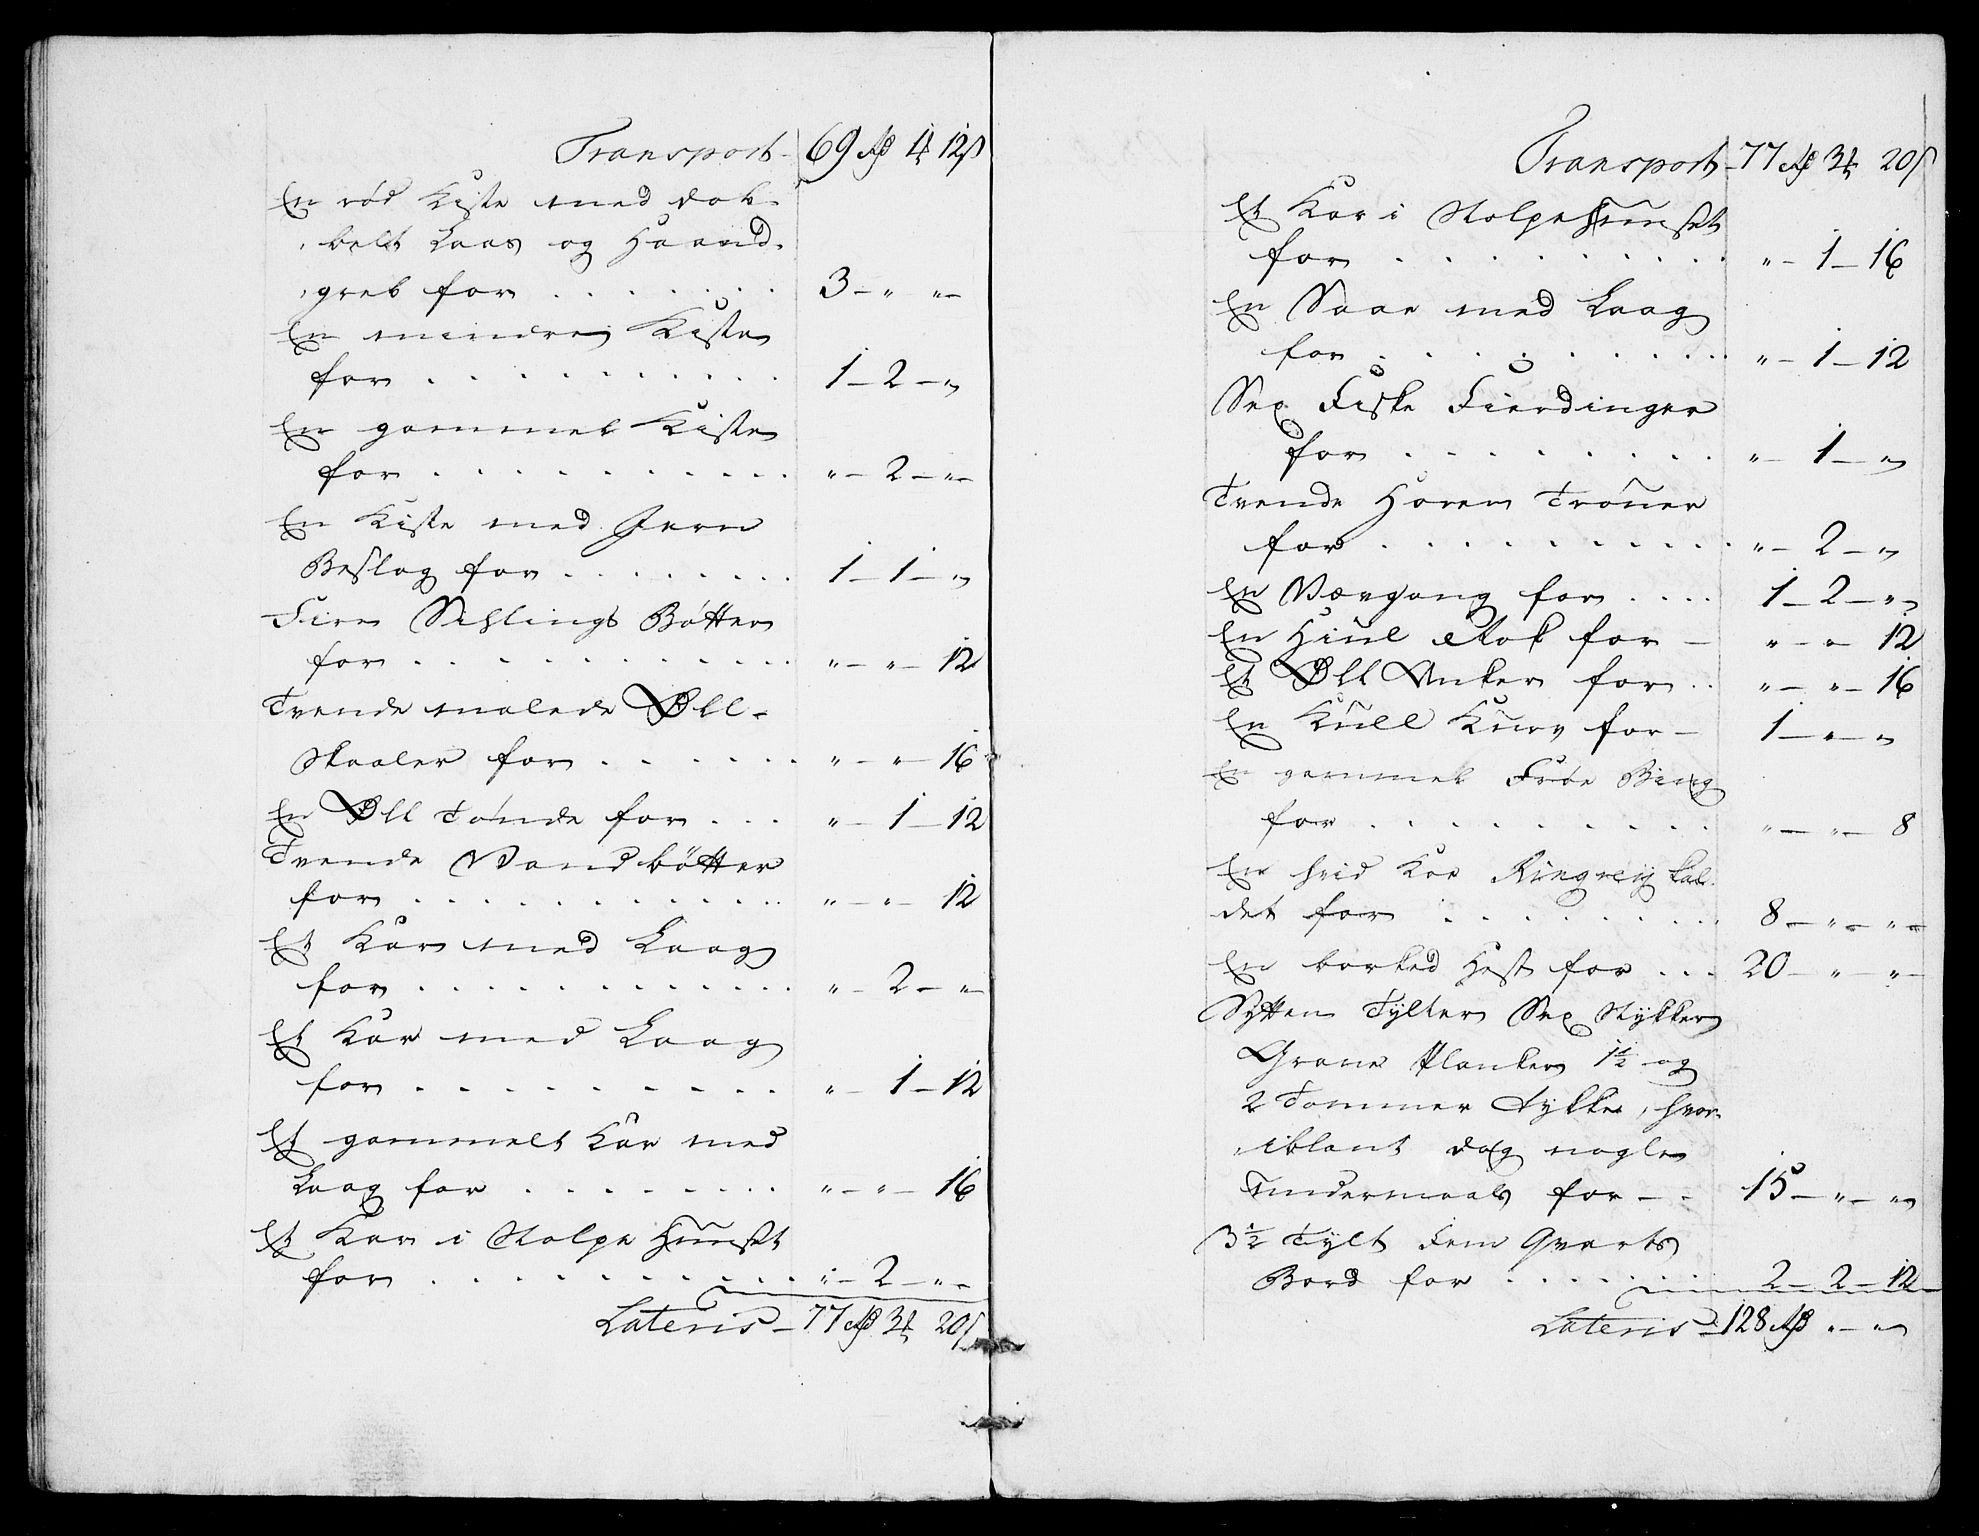 Transport - 69 Rd 4 12 ß
En rød Kiste med dob-
belt Laas og Haand-
greb for . . . . . . 3 - " - "
En mindre Kiste
for . . . . . . . . . 1 - 2 - "
En gammel Kiste
for . . . . . . . . . " - 2 - "
En Kiste med Jern
Beslag for . . . . . . . 1 - 1 - "
Fire Sehlings Bøtter
for . . . . . . . . . . " - " - 12
Tvende malede Øll-
Skaaler for . . . . . . " - " - 16
En Øll Tønde for . . . " - 1 - 12
Tvende Vandbøtter
for . . . . . . . . . . " - " - 12
Et Kar med Laag
for . . . . . . . . . . " - 2 - "
Et Kar med Laag
for . . . . . . . . . . " - 1 - 12
Et gammelt Kar med
Laag for . . . . . . . . " - " - 16
Et Kar i Stolpe Huuset
for . . . . . . . . . . " - 2 - "
Lateris - 77 Rd 3 20 ß
Transport - 77 Rd 3 20 ß
Et Kar i Stolpehuuset
for . . . . . . . . . " - 1 - 16
En Saae med Laag
for . . . . . . . . . " - 1 - 12
Sex Fiske Fierdinger
for . . . . . . . . " - 1 - "
Tvende Haren Trøuer
for . . . . . . . . . " - 2 - "
En Vævgang for . . . . 1 - 2 - "
En Hiul Rok for - " - " 12
Et Øll Anker for . . " - " - 16
En Kull Kurv for - 1 - " - "
En gammel Frøe Bing
for . . . . . . . . . " - " - 8
En hvid Koe Ringreij kal-
det for . . . . . . . . 8 - " - "
En borked Hest for . . . 20 - " - "
Sytten Tylter Sex Stykker
Grane Planker 1½ og
2 Tommer tykke, hvor-
iblant dog nogle
Undermaals for - - 15 - " - "
3½ Tylt Fem Qvarts
Bord for . . . . . . 2 - 2 - 12
Lateris - 128 Rd " - "